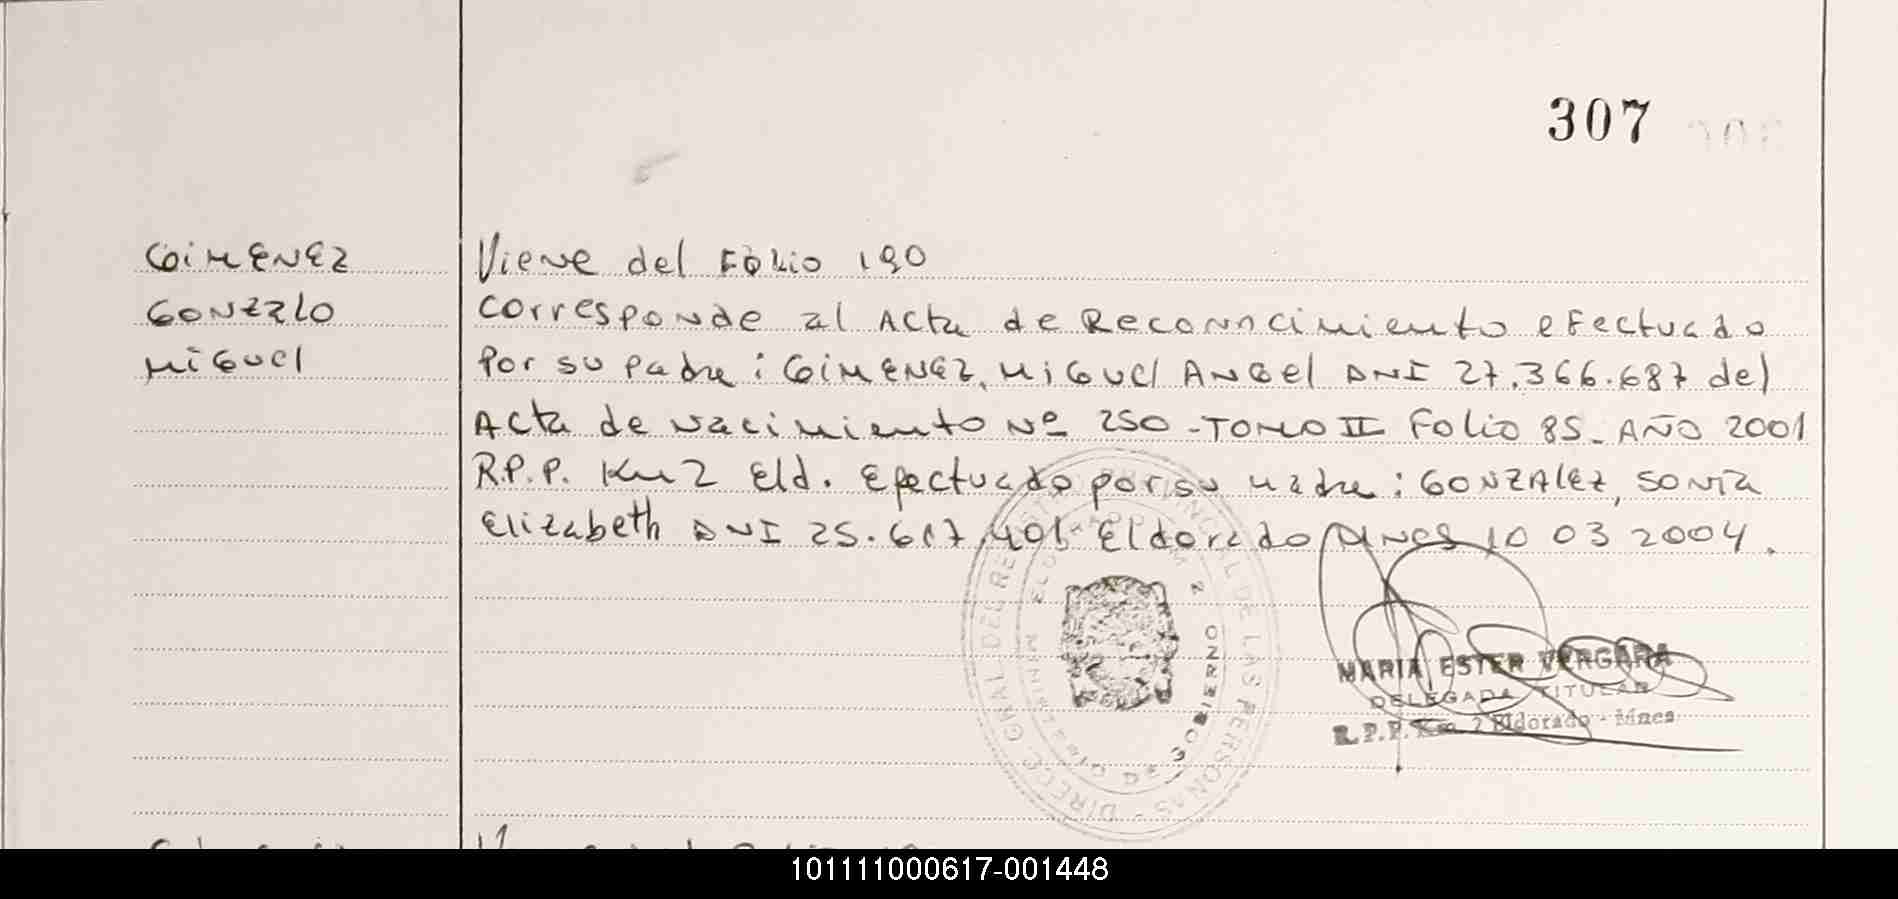 307
GIMENEZ
GONZALO
MIGUEL
Viene del Folio 190
Corresponde al Acta de Reconocimiento efectuado
Por su Padre : GIMENEZ, MIGUEL ANGEL DNI 27.366.687 del
Acta de nacimiento Nº 250 - TOMO II Folio 85 - AÑO 2001
R.P.P. Km 2 Eld. Efectuado por su madre : GONZALEZ, SONIA
Elizabeth DNI 25.617.401 Eldorado Mnes 10 03 2004.
MARIA ESTER VERGARA
DELEGADA TITULAR
R.P.P. Km. 2 Eldorado - Mnes
101111000617-001448